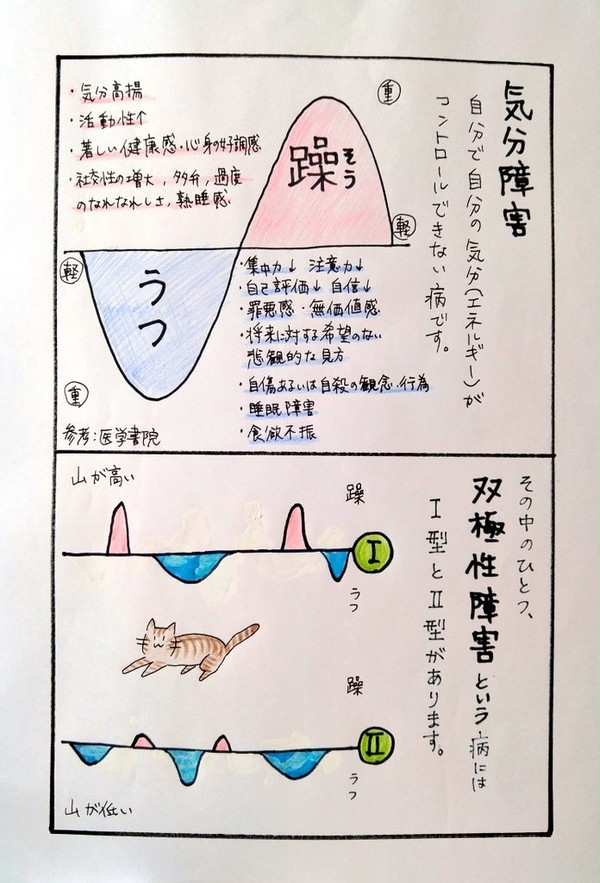 気分障害
自分で自分の気分(エネルギー)が
コントロールできない病です。
・気分高揚
・活動性↑
・著しい健康感・心身の好調感
・社交性の増大，多弁，過度
のなれなれしさ，熟睡感
重
躁
そう
軽
軽
うつ
重
・集中力↓ 注意力↓
・自己評価↓ 自信↓
・罪悪感・無価値感
・将来に対する希望のない
悲観的な見方
・自傷あるいは自殺の観念・行為
・睡眠障害
・食欲不振
参考：医学書院
その中のひとつ、
双極性障害という病には
Ⅰ型とⅡ型があります。
山が高い
躁
Ⅰ
うつ
躁
Ⅱ
うつ
山が低い